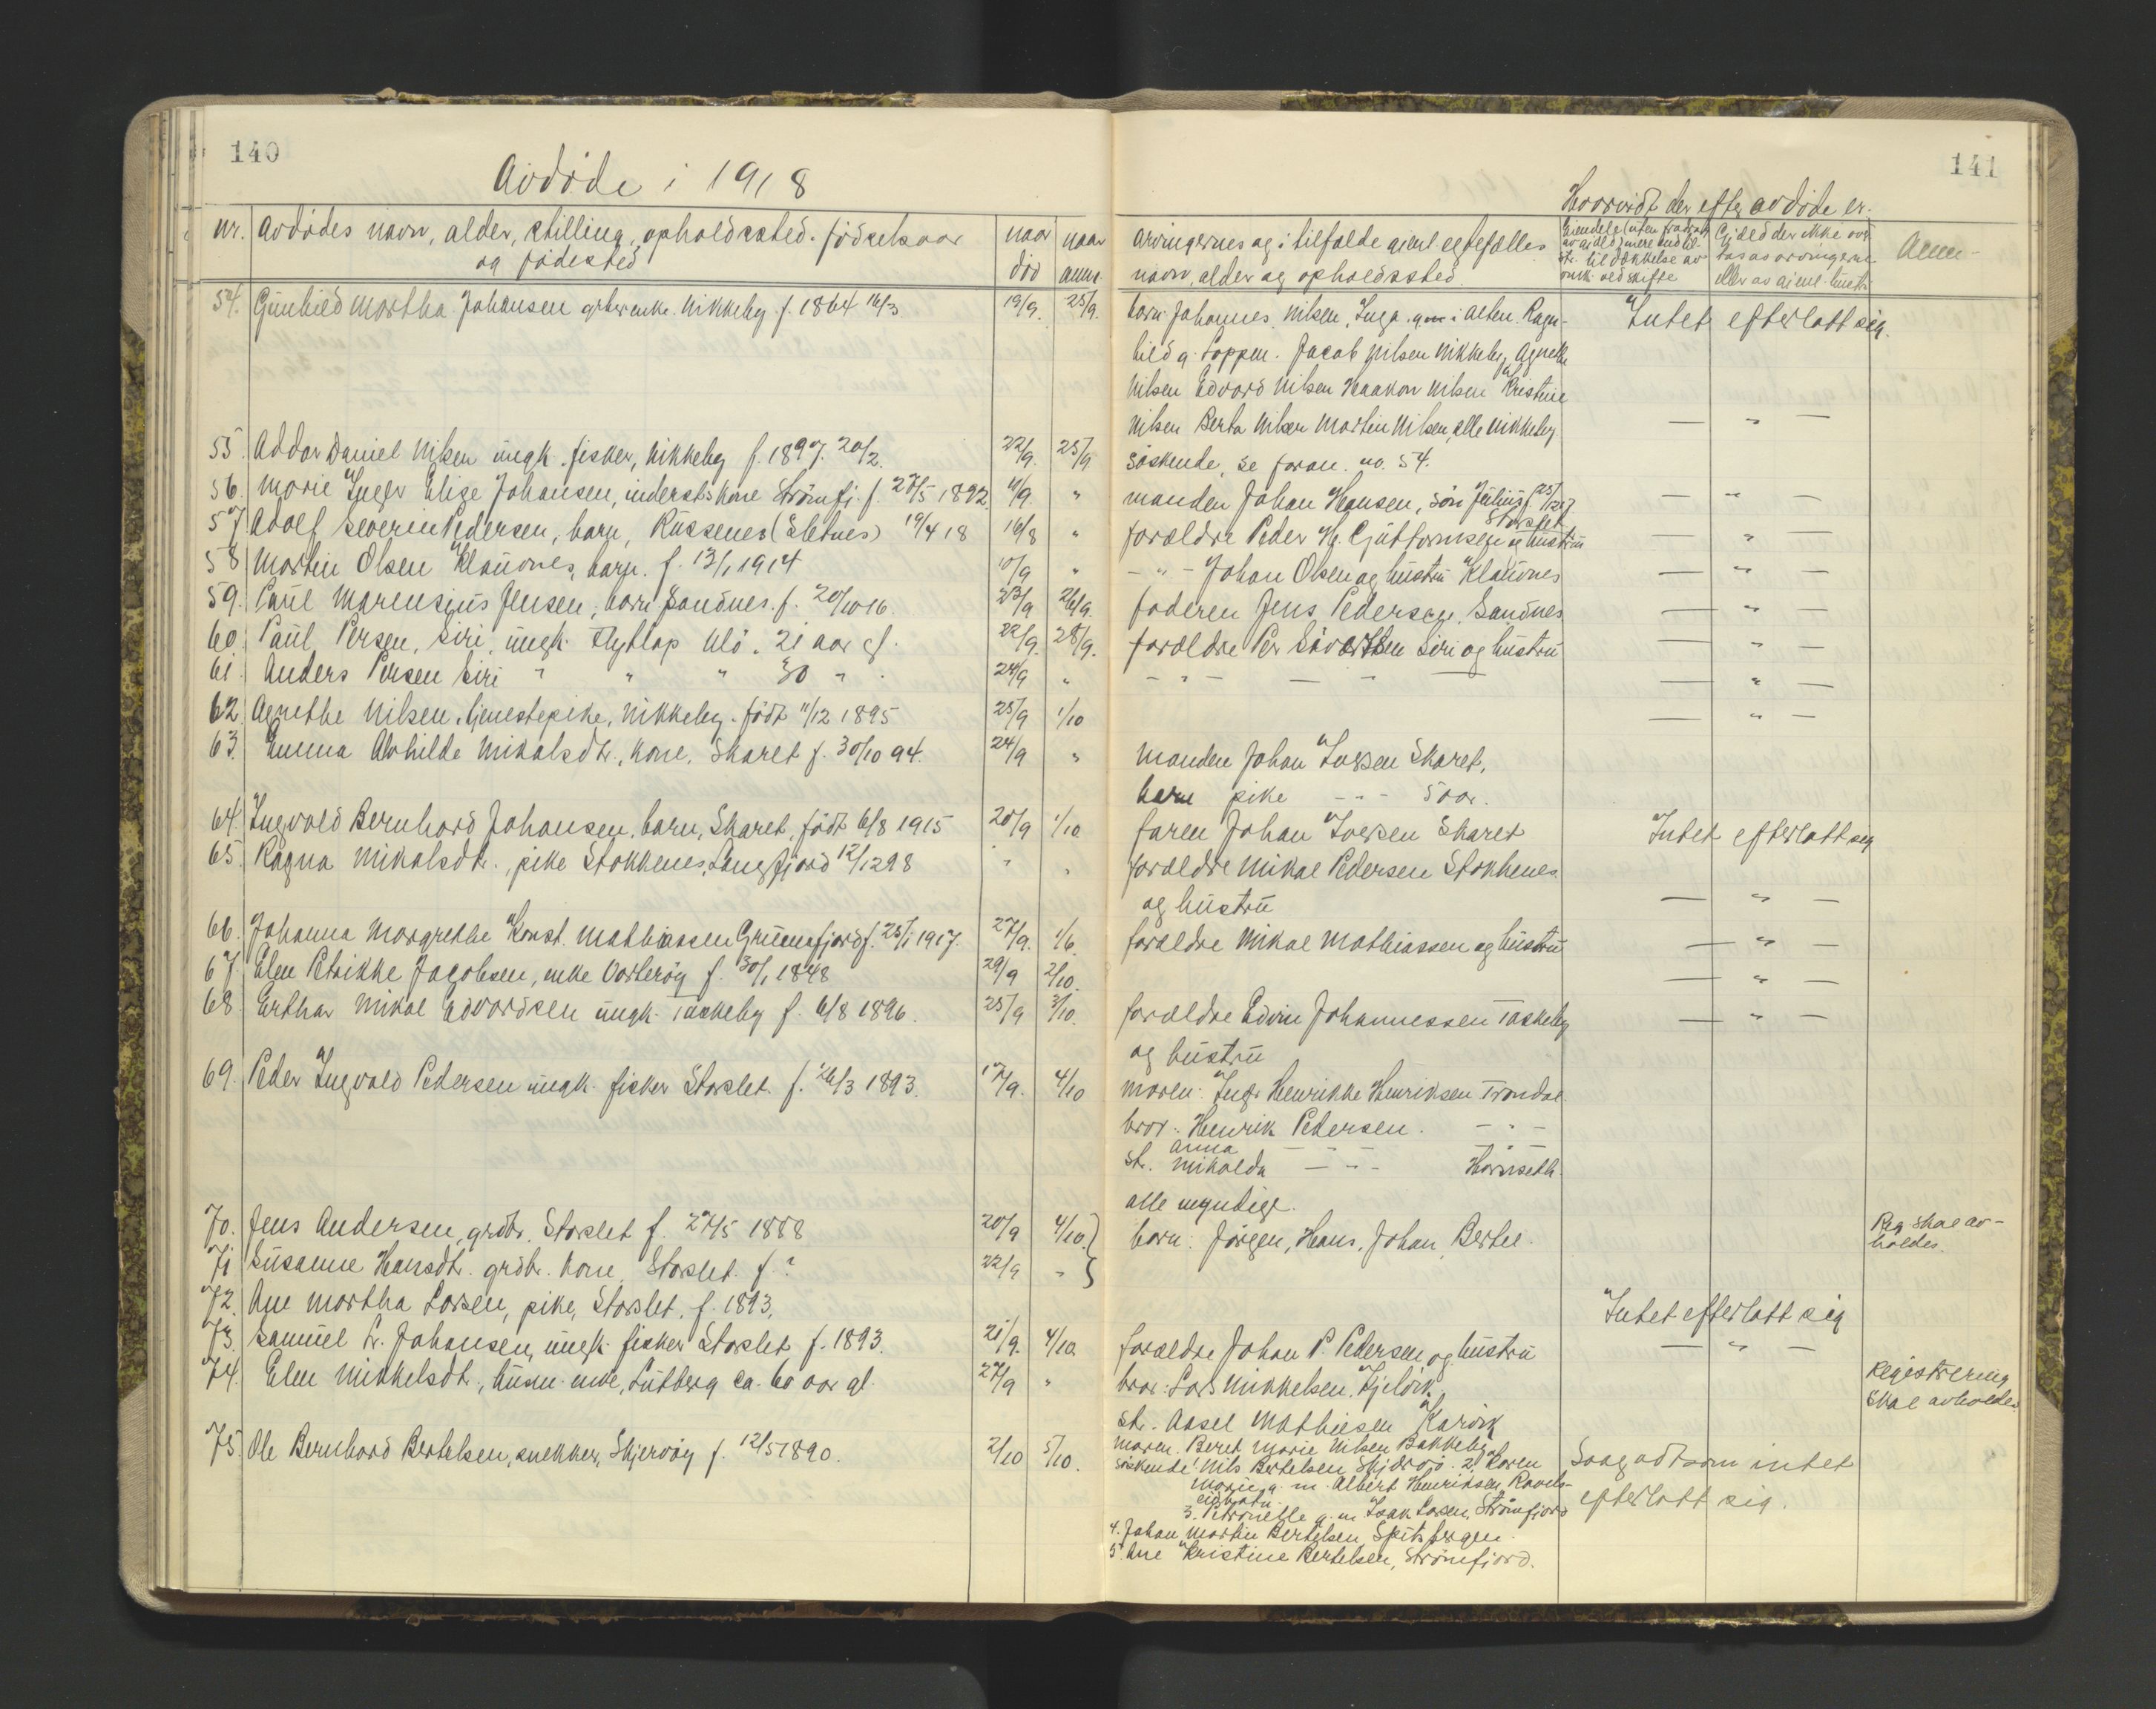 140
Avdöde i 1918
nr. avdödes navn, alder, stilling, opholdssted. födselsaar
og födested
naar
död
naar
anm.
54. Gunhild Martha Johansen grbr enke. Nikkeby f. 1864 16/3 19/9. 25/9.
55. Addor Daniel Nilsen ungk. fisker, Nikkeby f. 1897. 20/2. 22/9. 25/9
56. Marie Inger Elise Johansen, inderstskone Strömfj. f. 27/5 1892. 11/9. "
57 Adolf Severin Pedersen, barn, Russenes (Sletnes) 19/4 18 16/8 "
58 Martin Olsen Klauvnes, barn. f. 13/1 1914 10/9 "
59. Paul Marensius Jensen, barn Sandnes. f. 20/10 16. 23/9 26/9.
60. Paul Persen, Siri, ungk. Flytlap Ulö. 21 aar gl. 22/9. 28/9.
61. Anders Persen Siri " " " 30 " . 24/9 "
62. Agnethe Nilsen, tjenestepike, Nikkeby. födt 11/12 1895 25/9 1/10
63. Emma Alvhilde Mikalsdt., kone, Skaret f. 30/10 94. 24/9 "
64. Ingvald Bernhard Johansen. barn, Skaret, födt 6/8 1915 20/9 1/10
65. Ragna Mikalsdt., pike Stokkenes, Langfjord 12/12 98 " "
66. Johanna Margrethe Konst. Mathiassen Grunnfjord f. 25/1 1917. 27/9. 1/6.
67. Elen Petrikke Jacobsen, enke Vorteröy f. 30/1 1848 29/9 2/10.
68. Erthar Mikal Edvardsen ungk. Taskeby f. 6/8 1896. 25/9 3/10.
69. Peder Ingvald Pedersen ungk. fisker Storslet. f. 26/3 1893. 17/9. 4/10
70. Jens Andersen, grdbr. Storslet f. 27/5 1888 20/9 4/10.
71 Susanne Hansdt. grdbr. kone, Storslet. f. ? 22/9 "
72. Ane Martha Larsen, pike, Storslet. f. 1893.
73. Samuel L. Johansen, ungk. fisker Storslet f. 1893. 21/9. 4/10.
74. Elen Mikkelsdt., husm. enke, Lutberg ca. 60 aar gl. 27/9 "
75. Ole Bernhard Bertelsen, snekker, Skjervöy f. 12/5 1890. 2/10 5/10.
141
Hvorvidt der efter avdöde er.
arvingernes og i tilfælde gjenl. egtefælles
navn, alder og opholdssted.
Eiendele (uten fradrag
av gjæld) mere end til-
str. til dækkelse av
omk. ved skifte
Gjæld der ikke over-
tas av arvingerne
eller av gjenl. hustr.
Anm-
barn: Johannes Nilsen, Inga. gm i Alten. Ragn-
hild g. Loppen. Jacob Nilsen Nikkeby, Agnethe
Nilsen Edvard Nilsen Haakon Nilsen Kristine
Nilsen Berta Nilsen Martin Nilsen, alle Nikkeby
Intet efterlatt sig.
söskende, se foran. no. 54. — " —
manden Johan Hansen, sön Julius f. 25/12 17 — " —
Storslet
forældre Peder Hg. Guttormsen og hustru — " —
— " — Johan Olsen og hustru Klauvnes — " —
faderen Jens Pedersen, Sandnes — " —
forældre Per Siversen Siri og hustru — " —
— " — — " — — " —
— " —
manden Johan Iversen Skaret,
barn pike - " - 5 aar.
faren Johan Iversen Skaret Intet efterlatt sig
forældre Mikal Pedersen Stokkenes
og hustru — " —
forældre Mikal Mathiassen og hustru — " —
— " —
forældre Edvin Johannessen Taskeby — " —
og hustru
moren: Inger Henrikke Henriksen Trondal
bror: Henrik Pedersen. — " —
Anna — " — — " —
st. Mikalda — " — Havnseth.
alle myndige.
barn: Jörgen, Hans, Johan, Bertel. Reg. skal av-
holdes.
Intet efterlatt sig
forældre Johan P. Pedersen og hustru — " —
bror: Lars Mikkelsen, Kjelvik Registrering
skal avholdes.
st. Aasel Mathiesen Karvik
moren. Beret Marie Nilsen Bakkeby
söskende: Nils Bertelsen Skjervö. 2. Karen
Marie g. m. Albert Henriksen Ravels-
eidvatn
3. Petronelle g. m Isak Larsen, Strömfjord
4. Johan Martin Bertelsen Spitsbergen.
5. Ane Kristine Bertelsen, Strömfjord.
Saagodtsom intet
efterlatt sig.